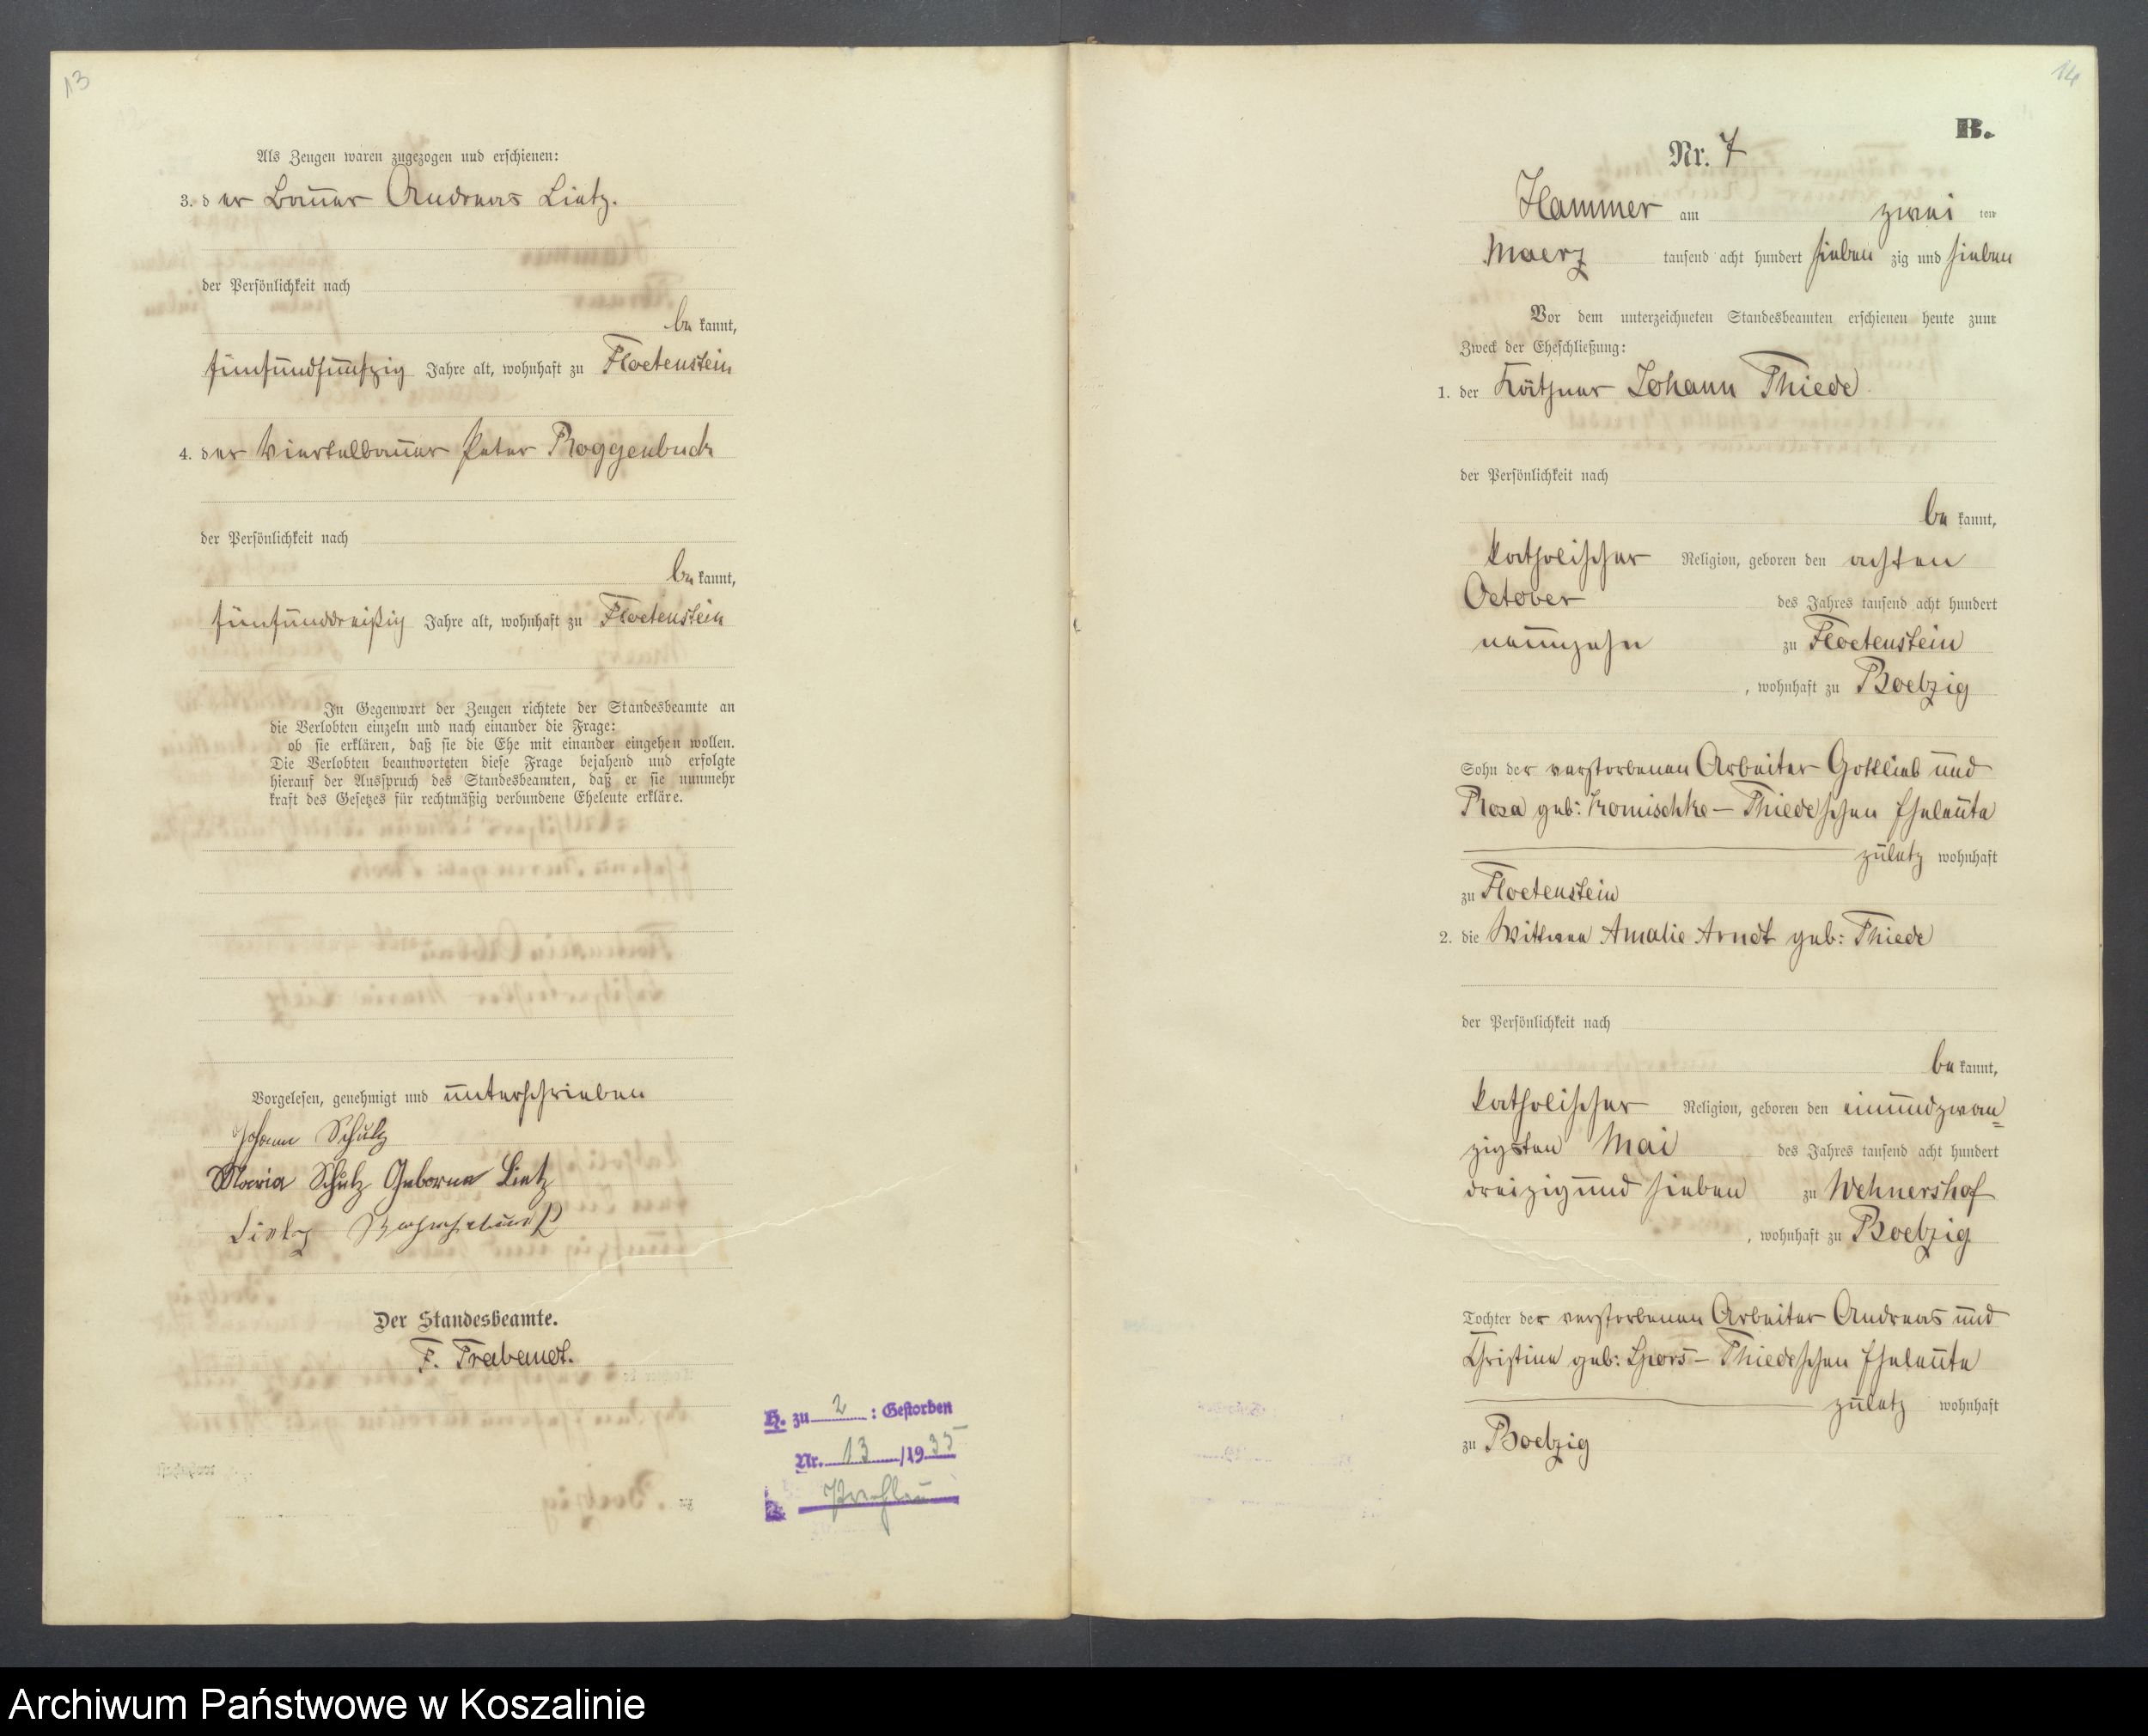 13
Als Zeugen waren zugezogen und erschienen:
3. der Bauer Andreas Lietz.
der Persönlichkeit nach
be kannt,
fünfundfünfzig Jahre alt, wohnhaft zu Floetenstein
4. der Viertelbauer Peter Roggenbuck
der Persönlichkeit nach
be kannt,
fünfunddreißig Jahre alt, wohnhaft zu Floetenstein
In Gegenwart der Zeugen richtete der Standesbeamte an
die Verlobten einzeln und nach einander die Frage:
ob sie erklären, daß sie die Ehe mit einander eingehen wollen.
Die Verlobten beantworteten diese Frage bejahend und erfolgte
hierauf der Ausspruch des Standesbeamten, daß er sie nunmehr
kraft des Gesetzes für rechtmäßig verbundene Eheleute erkläre.
Vorgelesen, genehmigt und unterschrieben
Johann Schulz
Maria Schulz Geborne Lietz
Lietz
Der Standesbeamte.
F. Trabandt.
H. zu 2 : Gestorben
Nr. 13 /1935
Prechlau
14
B.
Nr. 7
Hammer am zwei ten
Maerz tausend acht hundert sieben zig und sieben
Vor dem unterzeichneten Standesbeamten erschienen heute zum
Zweck der Eheschließung:
1. der Käthner Johann Thiede
der Persönlichkeit nach
be kannt,
katholischer Religion, geboren den achten
October des Jahres tausend acht hundert
neunzehn zu Floetenstein
, wohnhaft zu Boelzig
Sohn der verstorbenen Arbeiter Gottlieb und
Rosa geb: Komischke – Thiedeschen Eheleute
zuletz wohnhaft
zu Floetenstein
2. die Wittwee Amalie Arndt geb: Thiede
der Persönlichkeit nach
be kannt,
katholischer Religion, geboren den einundzwan=
zigsten Mai des Jahres tausend acht hundert
dreizig und sieben zu Wehnershof
, wohnhaft zu Boelzig
Tochter der verstorbenen Arbeiter Andreas und
Christine geb: Spors – Thiedeschen Eheleute
zuletz wohnhaft
zu Boelzig
Archiwum Państwowe w Koszalinie